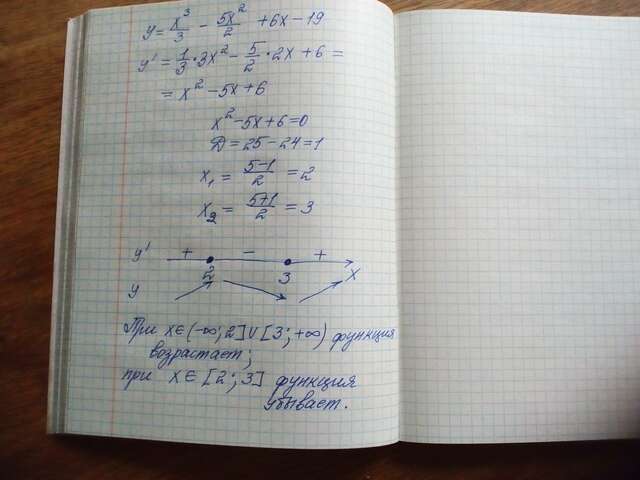 y = x³/3 - 5x²/2 + 6x - 19
y' = 1/3 · 3x² - 5/2 · 2x + 6 =
= x² - 5x + 6
x² - 5x + 6 = 0
Д = 25 - 24 = 1
x₁ = (5-1)/2 = 2
x₂ = (5+1)/2 = 3
y' + - +
2 3 X
y
При x ∈ (-∞; 2] ∪ [3; +∞) функция
возрастает;
при x ∈ [2; 3] функция
убывает.